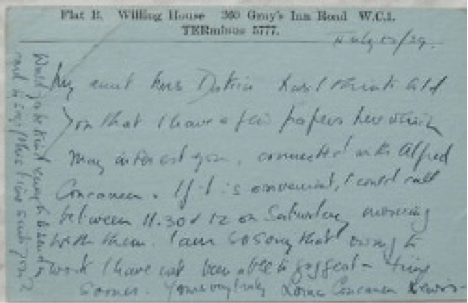 Flat B. Willing House 360 Gray's Inn Road W.C.1.
TERminus 5777.
July 13/59.
My aunt Mrs told
you that I have a few papers here which
may interest you, connected with Alfred
Concanen. If it is convenient, I could call
between 11.30 & 12 on Saturday morning
with them. I am so sorry that owing to
work I have not been able to suggest a time
sooner. Yours
Concanen
Would you be kind enough to